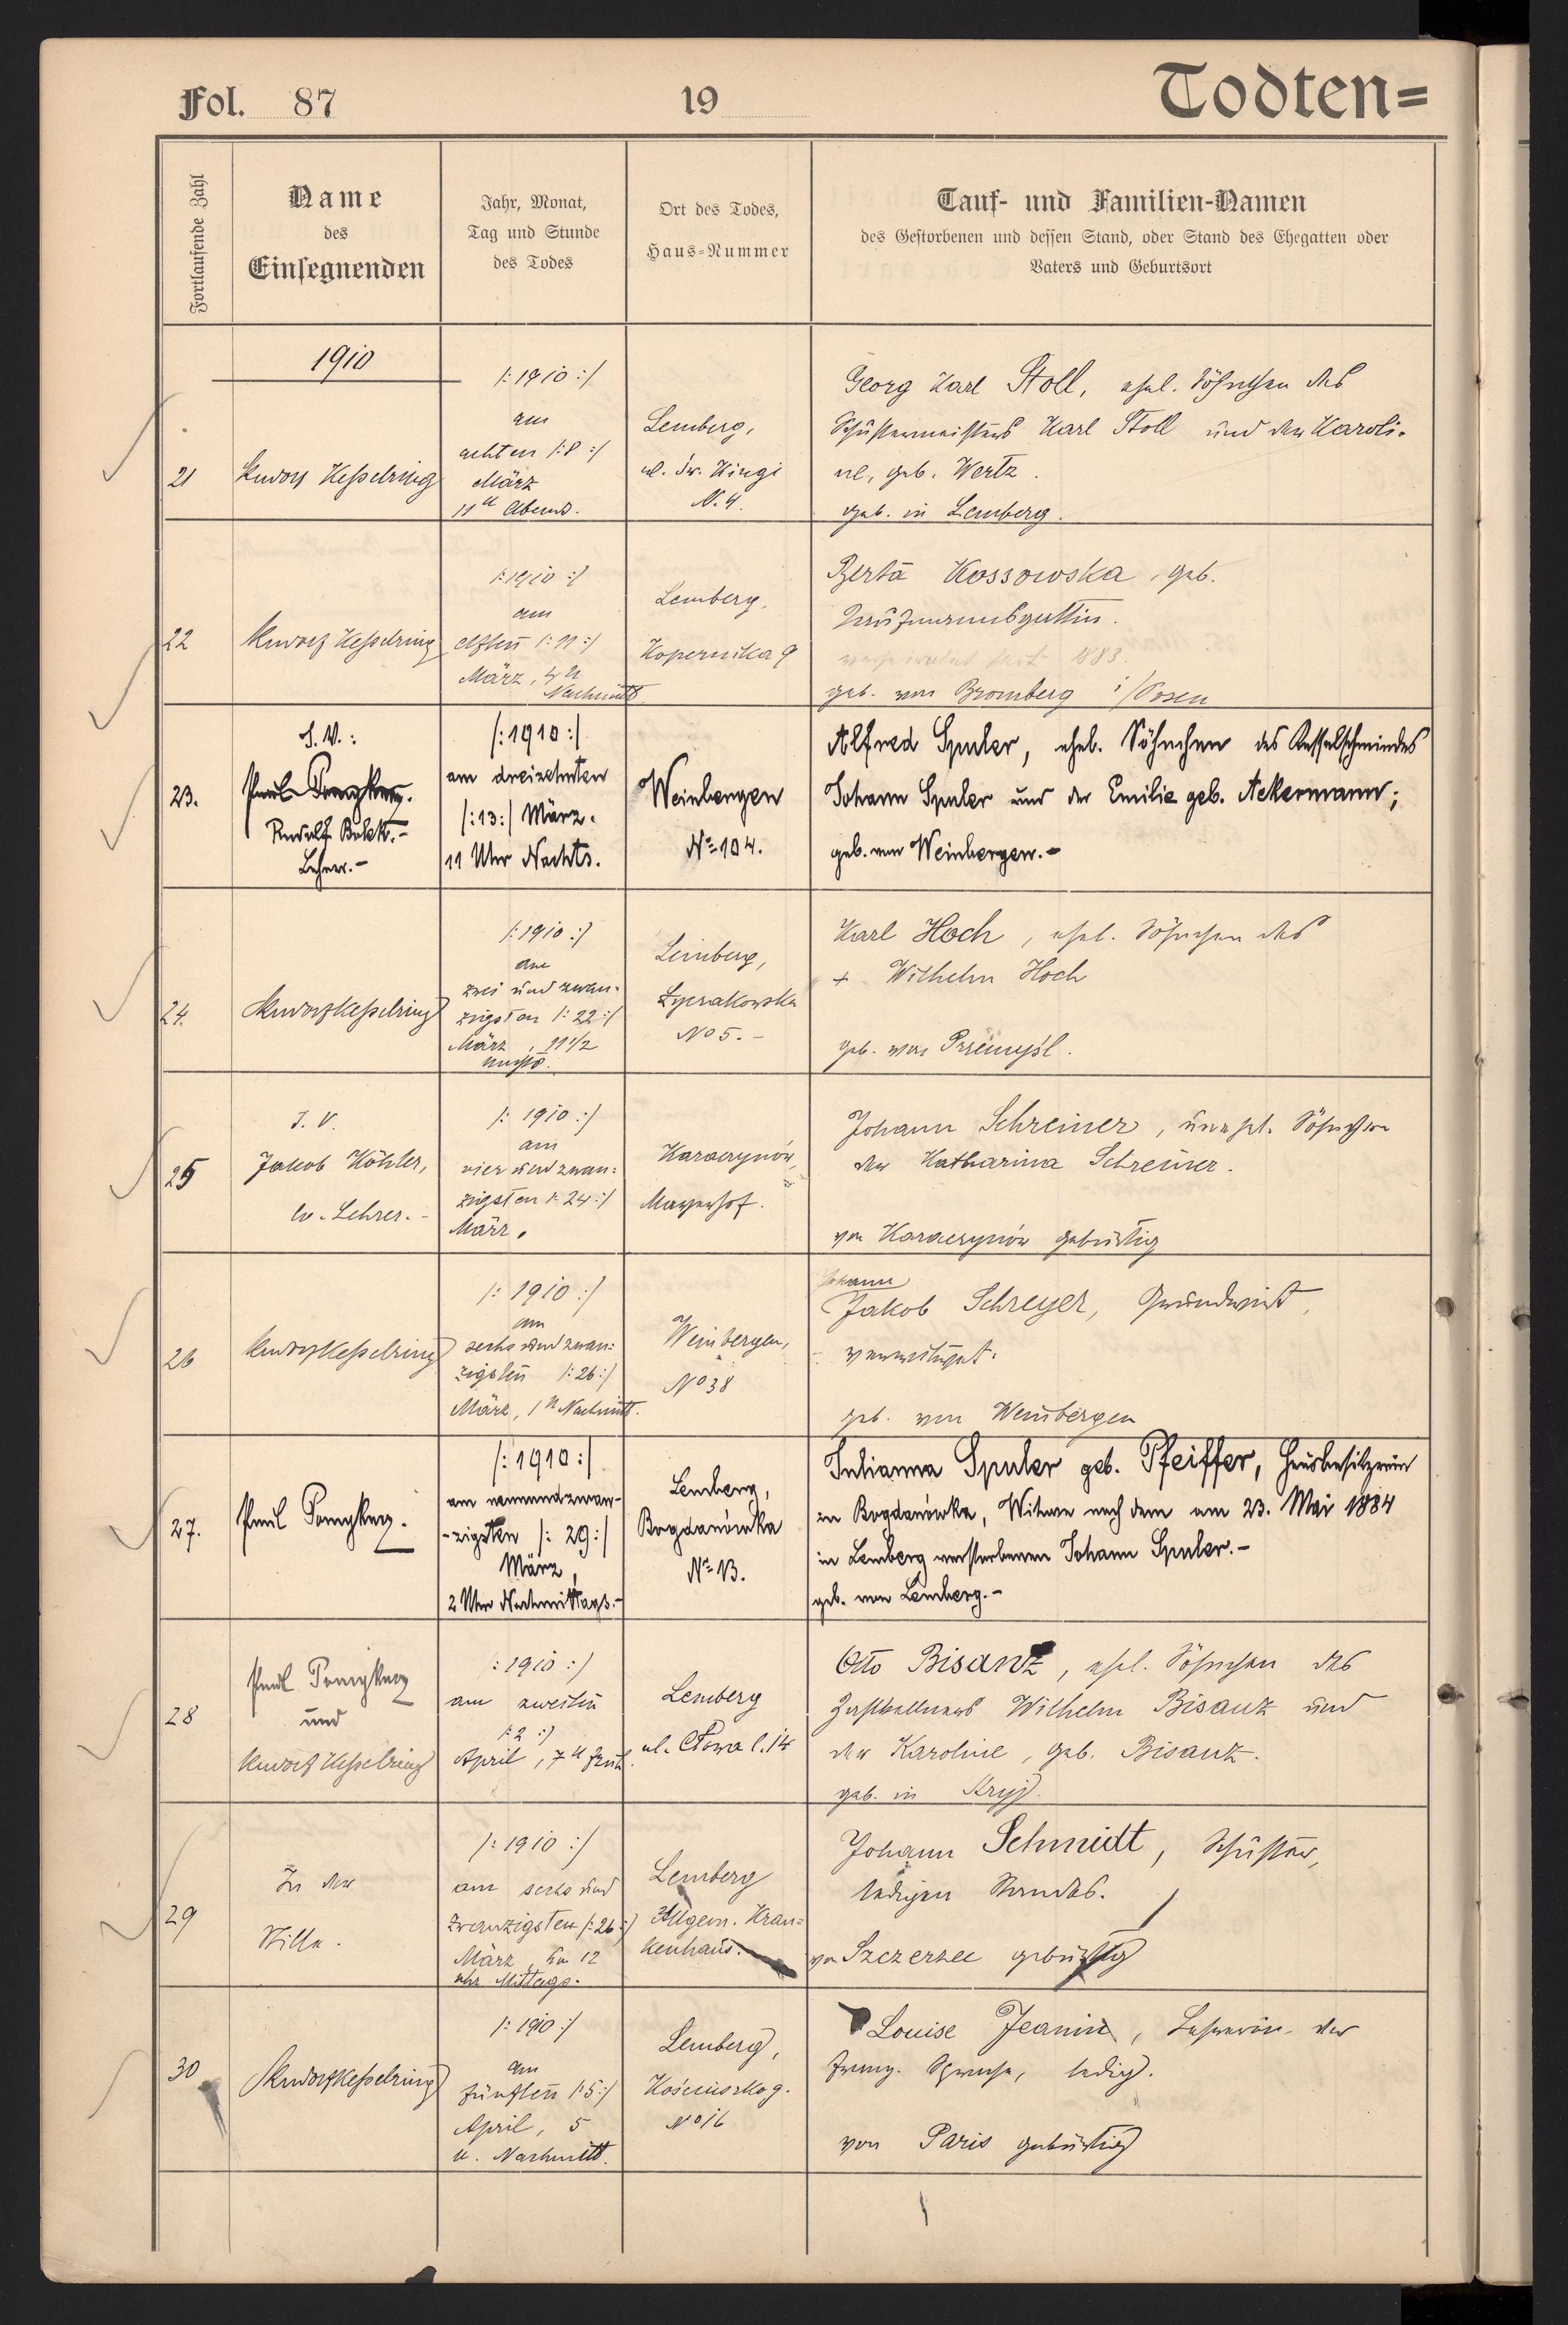 Fol. 87
19
Todten=
Fortlaufende Zahl
Name
des
Einsegnenden
Jahr, Monat,
Tag und Stunde
des Todes
Ort des Todes,
Haus-Nummer
Tauf- und Familien-Namen
des Gestorbenen und dessen Stand, oder Stand des Ehegatten oder
Vaters und Geburtsort
1910
21
Rudolf Kesselring
/: 1910 :/
am
achten /: 8 :/
März
11 u Abends.
Lemberg,
ul. św. Kingi
N. 4.
Georg Karl Stoll, ehel. Söhnchen des
Schustermeisters Karl Stoll und der Karoli-
ne, geb. Wertz.
geb. in Lemberg.
22
Rudolf Kesselring
/: 1910 :/
am
elften /: 11 :/
März, 4 u
Nachmitt.
Lemberg,
Kopernika 9
Berta Kossowska, geb.
seit 1883.
geb. von Bromberg i/Posen
23.
I. V.:
Rudolf Bolek.-
Lehrer.-
/: 1910 :/
am dreizehnten
/: 13 :/ März.
11 Uhr Nachts.
Weinbergen
No 104.
Alfred Spuler, ehel. Söhnchen des Kesselschmiedes
Johann Spuler und der Emilie geb. Ackermann;
geb. von Weinbergen.-
24.
Rudolf Kesselring
/: 1910 :/
am
zwei und zwan-
zigsten /: 22 :/
März, 11 1/2
nachts.
Lemberg,
Łyczakowska
No 5.-
Karl Hoch, ehel. Söhnchen des
+ Wilhelm Hoch
geb. von Przemyśl.
25
I. V.
Jakob Köhler,
ev. Lehrer.-
/: 1910 :/
am
vier und zwan-
zigsten /: 24 :/
März.
Karaczynów,
Mayerhof.
Johann Schreiner, unehel. Söhnchen
der Katharina Schreiner.
von Karaczynów gebürtig
26
Rudolf Kesselring
/: 1910 :/
am
sechs und zwan-
zigsten /: 26 :/
März, 1 u Nachmitt.
Weinbergen,
No 38
Johann
Jakob Schreyer, Grundwirt,
verwitwet.
geb. von Weinbergen
27.
Paul
/: 1910 :/
am neunundzwan-
-zigsten /: 29 :/
März,
2 Uhr Nachmittags.-
Lemberg,
Bogdanówka
No 13.
Julianna Spuler geb. Pfeiffer, Hausbesitzerin
in Bogdanówka, Witwe nach dem am 23. Mai 1884
in Lemberg verstorbenen Johann Spuler.-
geb. von Lemberg.-
28
Paul
und
Rudolf Kesselring
/: 1910 :/
am zweiten
/: 2 :/
April, 7 u Früh.
Lemberg
ul. Cłowa l. 14
Otto Bisanz, ehel. Söhnchen des
Wilhelm Bisanz und
der Karoline, geb. Bisanz.
geb. in Stryj.
29
In der
Stille.
/: 1910 :/
am sechs und
zwanzigsten /: 26 :/
März, um 12
uhr Mittags.
Lemberg
Allgem. Kran-
kenhaus.
Johann Schmidt, Schuster,
ledigen Standes.
von Szczerzec gebürtig
30
Rudolf Kesselring
/: 1910 :/
am
fünften /: 5 :/
April, 5
u. Nachmitt.
Lemberg,
Kościuszkog.
No 16
Louise Jeanin, Lehrerin der
franz. Sprache, ledig.
von Paris gebürtig